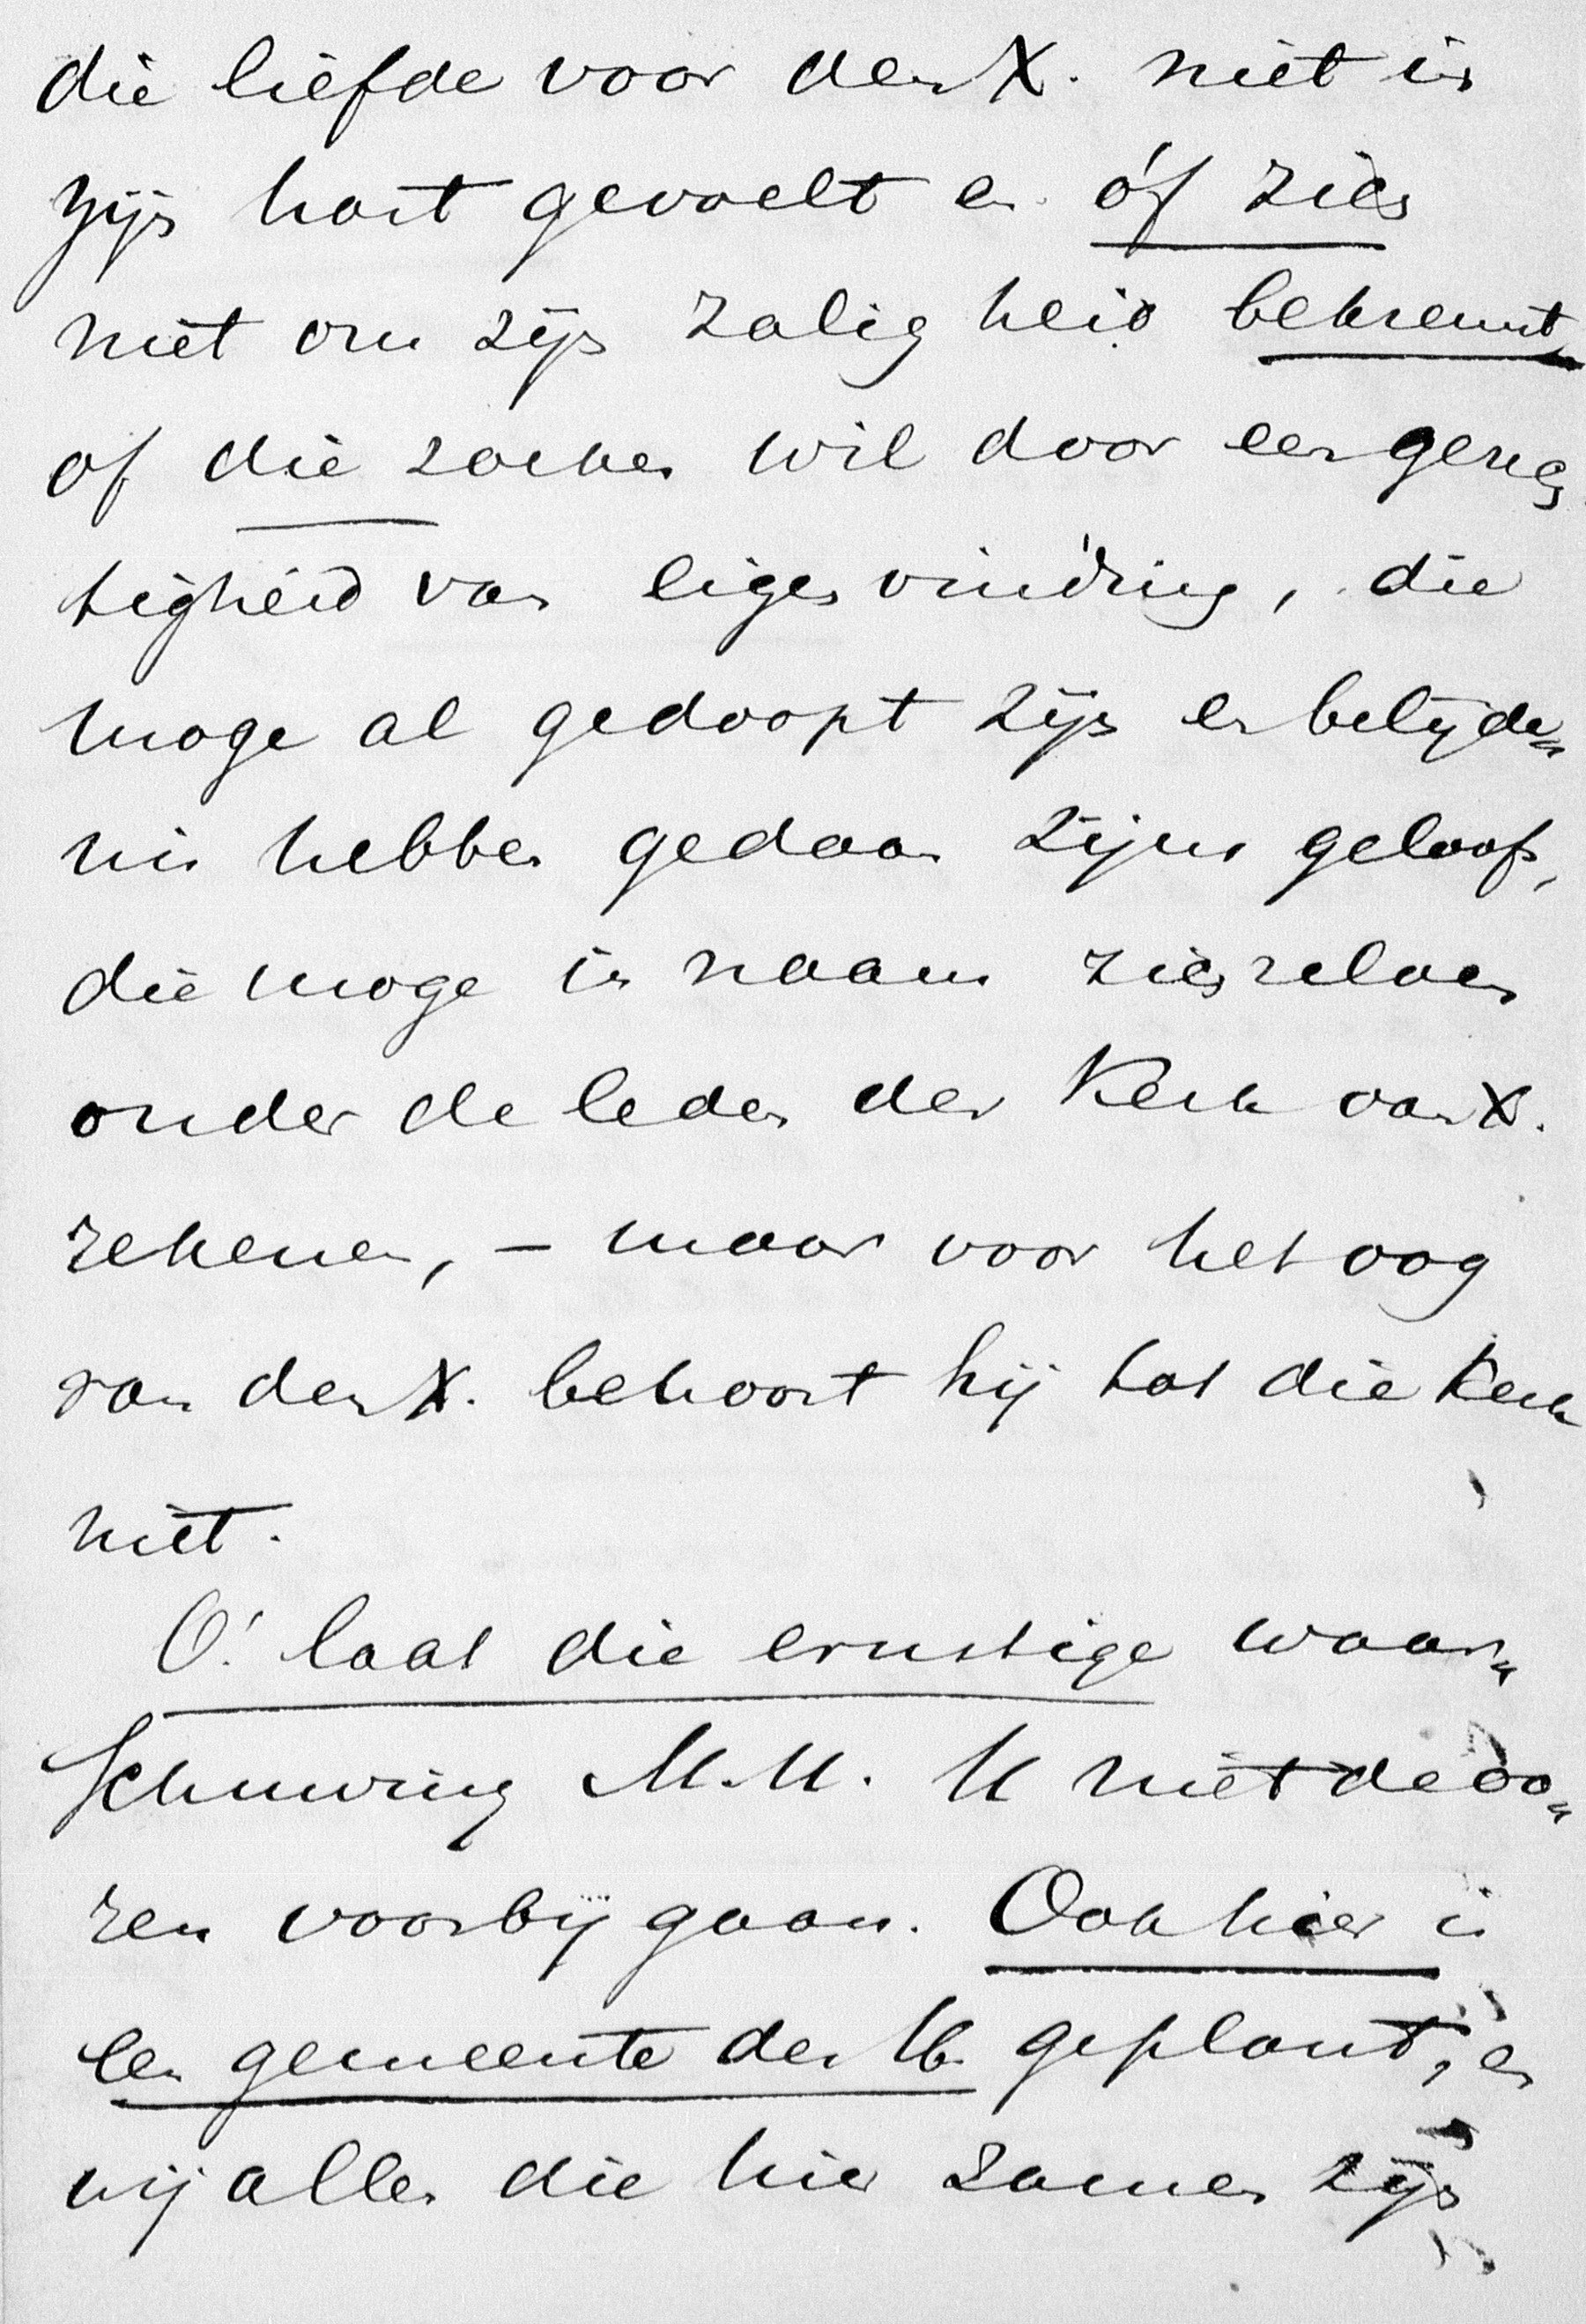 die liefde voor den X. niet in
zijn hart gevoelt en óf zich
niet om zijn zaligheid bekreunt,
of die zoeken wil door een gereg
tigheid van eigen vinding, die
moge al gedoopt zijn en belijde„
nis hebben gedaan zijns geloofs,
die moge in naam zich zelven
onder de leden der Kerk van X.
rekenen, – maar voor het oog
van den X. behoort hij tot die Kerk
niet.
O! laat die ernstige waar„
schuwing M. H. U niet de oo„
ren voorbij gaan. Ook hier is
een gemeente des H. geplant, en
wij allen die hier zamen zijn